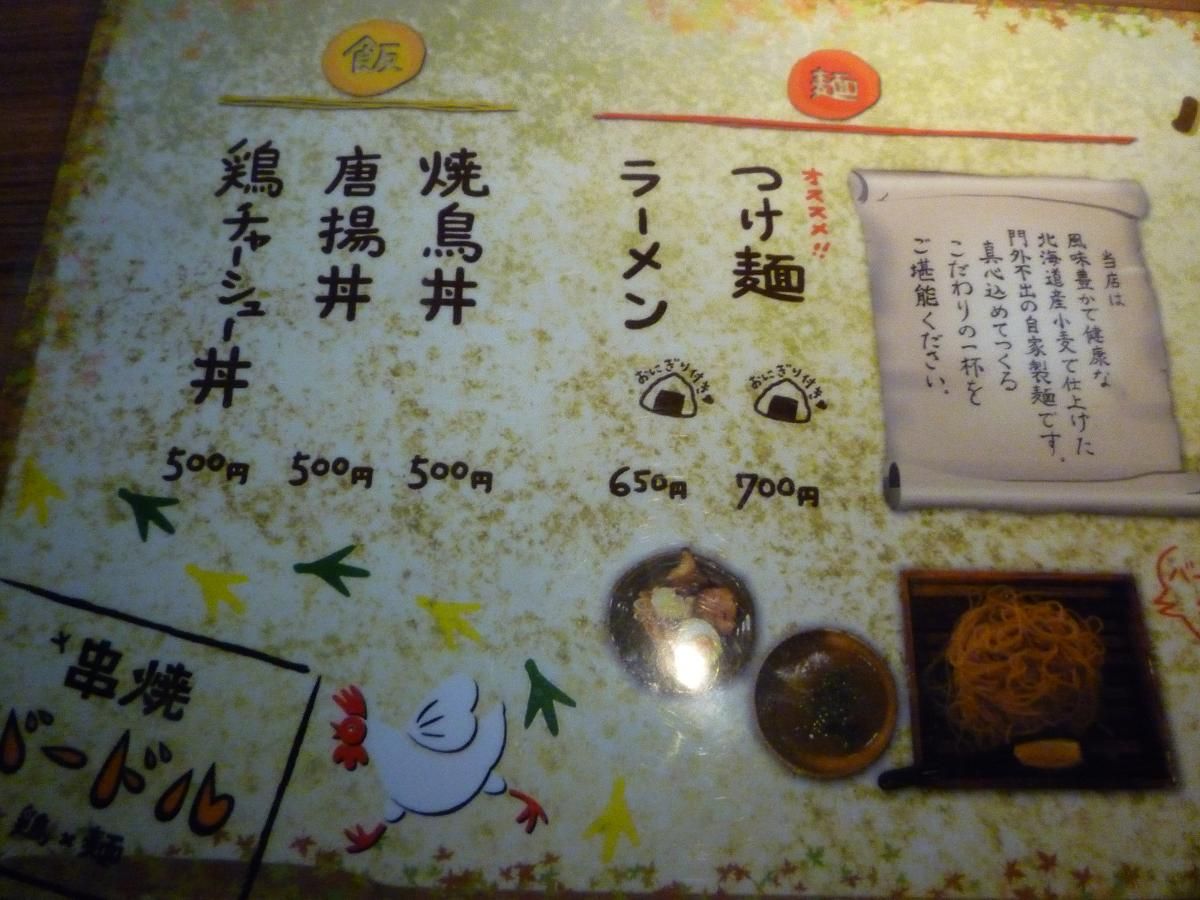 当店は
風味豊かで健康な
北海道産小麦で仕上げた
門外不出の自家製麺です。
真心込めてつくる
こだわりの一杯を
ご堪能ください。
麺
オススメ!!
つけ麺
おにぎり付き
700円
ラーメン
おにぎり付き
650円
飯
焼鳥丼
500円
唐揚丼
500円
鶏チャーシュー丼
500円
串焼
バードル
鶏×麺